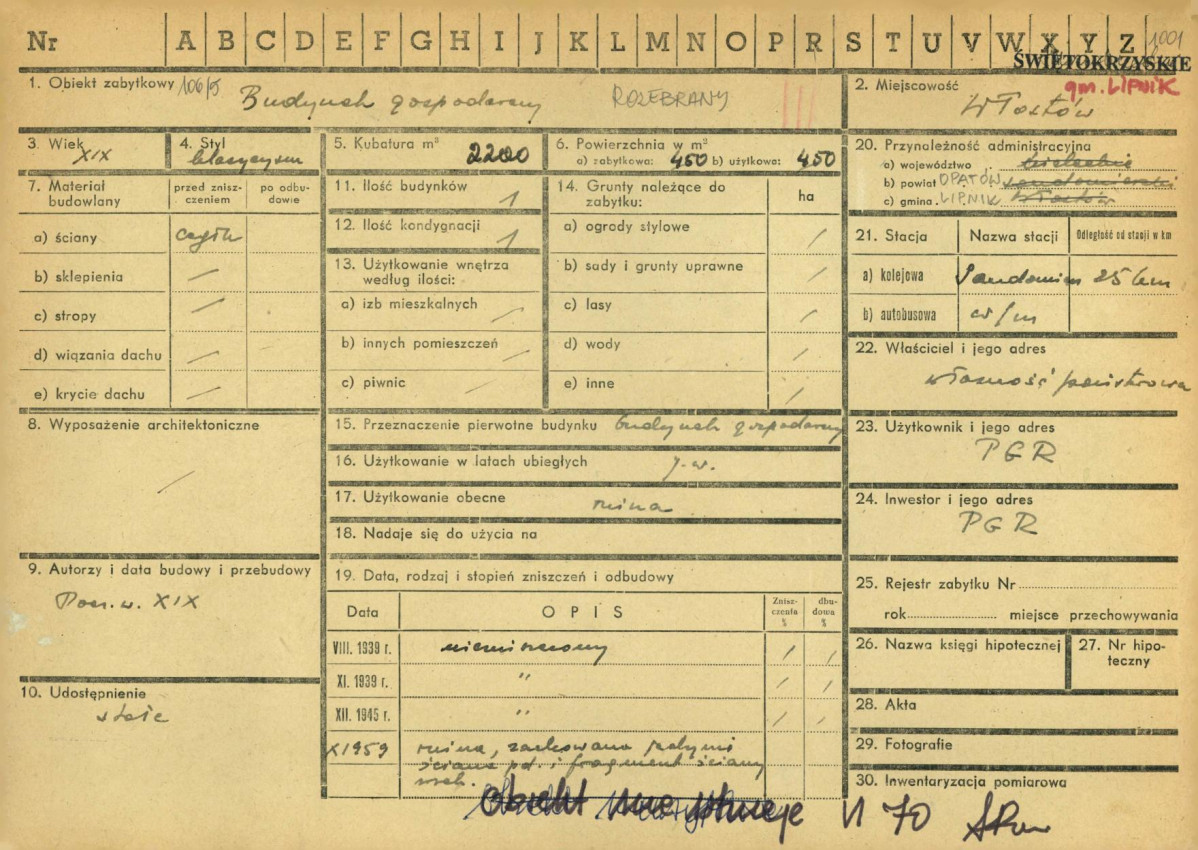 Nr A B C D E F G H I J K L M N O P R S T U V W X Y Z 1001
ŚWIĘTOKRZYSKIE
1. Obiekt zabytkowy 106/5
Budynek gospodarczy ROZEBRANY
2. Miejscowość gm. LIPNIK
Włostów
3. Wiek
XIX
4. Styl
klasycyzm
5. Kubatura m³ 2200
6. Powierzchnia w m²
a) zabytkowa: 450 b) użytkowa: 450
20. Przynależność administracyjna
a) województwo kieleckie
b) powiat OPATÓW sandomierski
c) gmina LIPNIK Włostów
7. Materiał budowlany
przed znisz-
czeniem
po odbu-
dowie
a) ściany cegła
b) sklepienia /
c) stropy /
d) wiązania dachu /
e) krycie dachu /
11. Ilość budynków 1
12. Ilość kondygnacji 1
13. Użytkowanie wnętrza
według ilości:
a) izb mieszkalnych /
b) innych pomieszczeń /
c) piwnic /
14. Grunty należące do
zabytku:
ha
a) ogrody stylowe /
b) sady i grunty uprawne /
c) lasy /
d) wody /
e) inne /
21. Stacja Nazwa stacji Odległość od stacji w km
a) kolejowa Sandomierz 25 km
b) autobusowa w/m
22. Właściciel i jego adres
własność państwowa
8. Wyposażenie architektoniczne
/
15. Przeznaczenie pierwotne budynku budynek gospodarczy
16. Użytkowanie w latach ubiegłych j.w.
17. Użytkowanie obecne ruina
18. Nadaje się do użycia na
23. Użytkownik i jego adres
PGR
24. Inwestor i jego adres
PGR
9. Autorzy i data budowy i przebudowy
Pocz. w. XIX
10. Udostępnienie
stałe
19. Data, rodzaj i stopień zniszczeń i odbudowy
Data OPIS
Znisz-
czenia
%
dbu-
dowa
%
VIII. 1939 r. niezniszczony / /
XI. 1939 r. " / /
XII. 1945 r. " / /
X 1959 ruina, zachowana jedynie
ściana pd. i fragment ściany
wsch.
obiekt nie istnieje VI 70
25. Rejestr zabytku Nr
rok miejsce przechowywania
26. Nazwa księgi hipotecznej
27. Nr hipo-
teczny
28. Akta
29. Fotografie
30. Inwentaryzacja pomiarowa